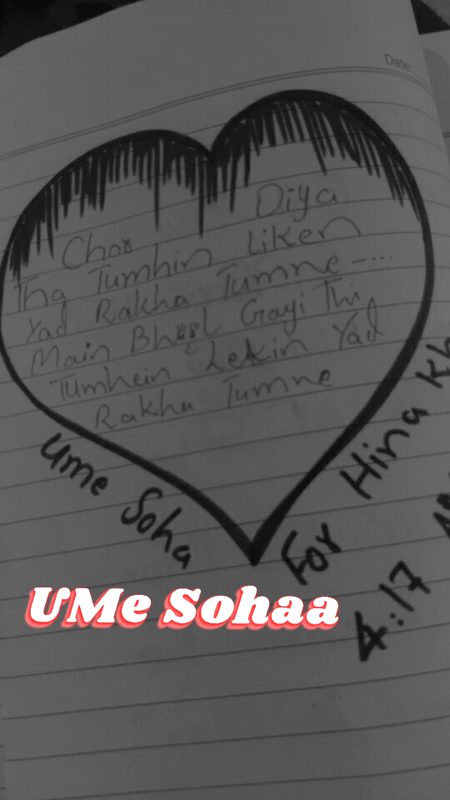 Date
Chor Diya
Thg Tumhin Liken
Yad Rakha Tumne ----...
Main Bhool Gayi Thi
Tumhein Lekin Yad
Rakha Tumne
Ume Soha
For Hina Kh
4:17
UMe Sohaa